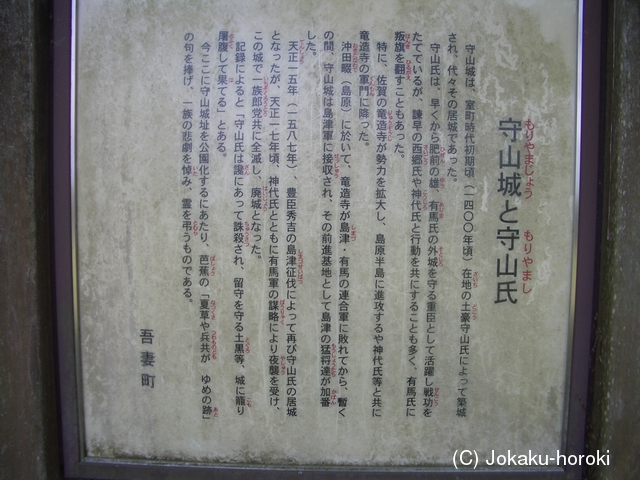 守山城と守山氏
もりやまじょう もりやまし
守山城は、室町時代初期頃（一四〇〇年頃）在地の土豪守山氏によって築城
され、代々その居城であった。
守山氏は、早くから肥前の雄、有馬氏の外城を守る重臣として活躍し戦功を
たてているが、諫早の西郷氏や神代氏と行動を共にすることも多く、有馬氏に
叛旗を翻すこともあった。
特に、佐賀の竜造寺が勢力を拡大し、島原半島に進攻するや神代氏等と共に
竜造寺の軍門に降った。
沖田畷（島原）に於いて、竜造寺が島津・有馬の連合軍に敗れてから、暫く
の間、守山城は島津軍に接収され、その前進基地として島津の猛将達が加番
した。
天正一五年（一五八七年）、豊臣秀吉の島津征伐によって再び守山氏の居城
となったが、天正一七年頃、神代氏とともに有馬軍の謀略により夜襲を受け、
この城で一族郎党共に全滅し、廃城となった。
記録によると「守山氏は讒にあって誅殺され、留守を守る土黒等、城に籠り
屠腹して果てる」とある。
今ここに守山城址を公園化するにあたり、芭蕉の「夏草や兵共が ゆめの跡」
の句を捧げ、一族の悲劇を悼み、霊を弔うものである。
吾妻町
(C) Jokaku-horoki